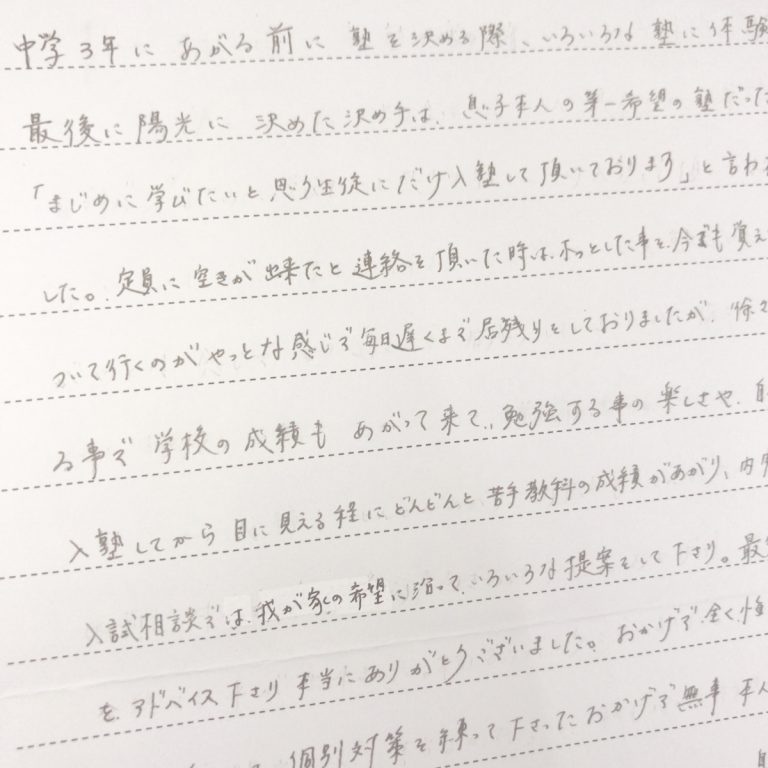 中学3年に あがる前に 塾を決める際、いろいろな塾に体験
最後に陽光に 決めた決め手は、息子本人の第一希望の塾だった
「まじめに学びたいと思う生徒にだけ入塾して頂いております」と言わ
した。定員に空きが出来たと連絡を頂いた時は、ホッとした事を、今でも覚え
ついて行くのがやっとな感じで毎日遅くまで居残りをしておりましたが、徐々
る事で学校の成績も あがって来て、勉強する事の楽しさや、自
入塾してから目に見える程にどんどんと苦手教科の成績があがり、内
入試相談では、我が家の希望に沿って、いろいろな提案をして下さり。最
を、アドバイス下さり本当にありがとうございました。おかげで全く
個別対策を練って下さったおかげで無事本人